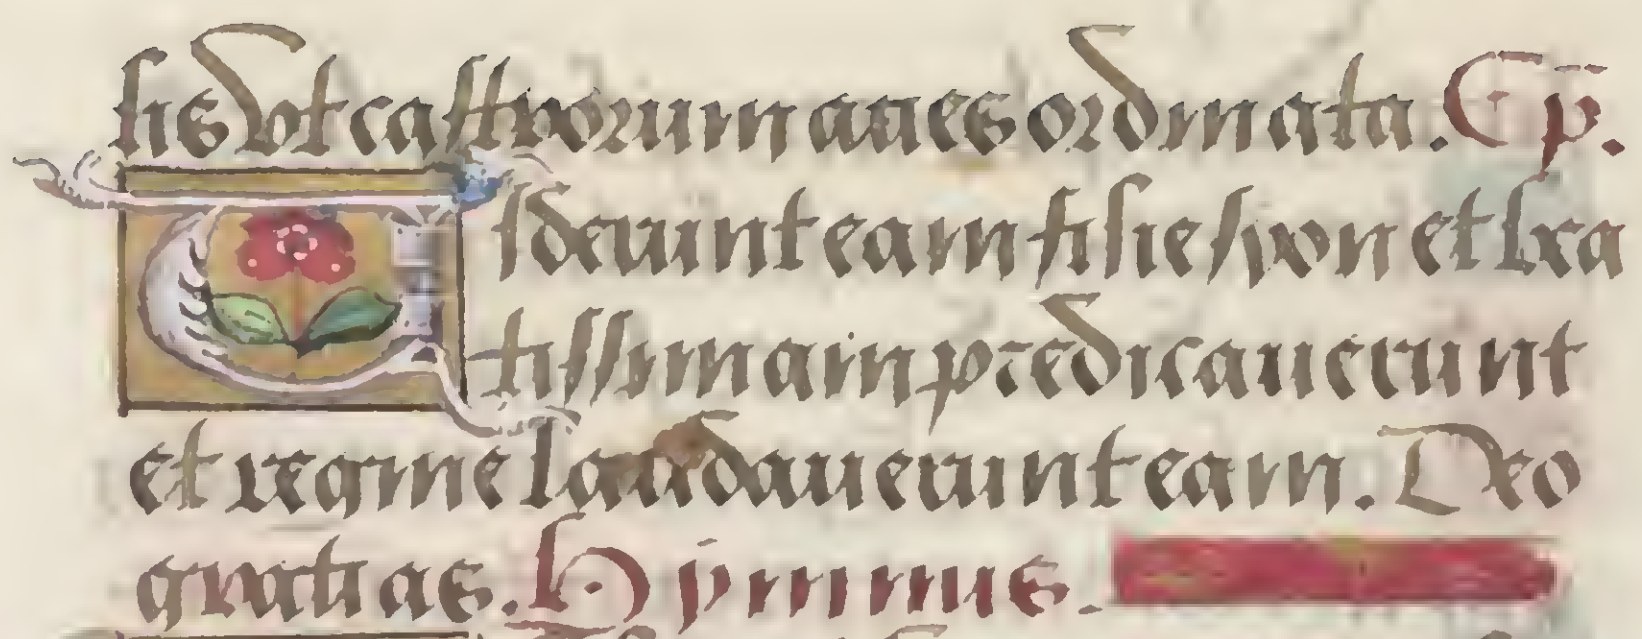 lis vt castrorum acies ordinata. Cap̄.
Uiderunt eam filie syon et bea
tissimam predicauerunt
et regine laudauerunt eam. Deo
gratias. Hymnus.